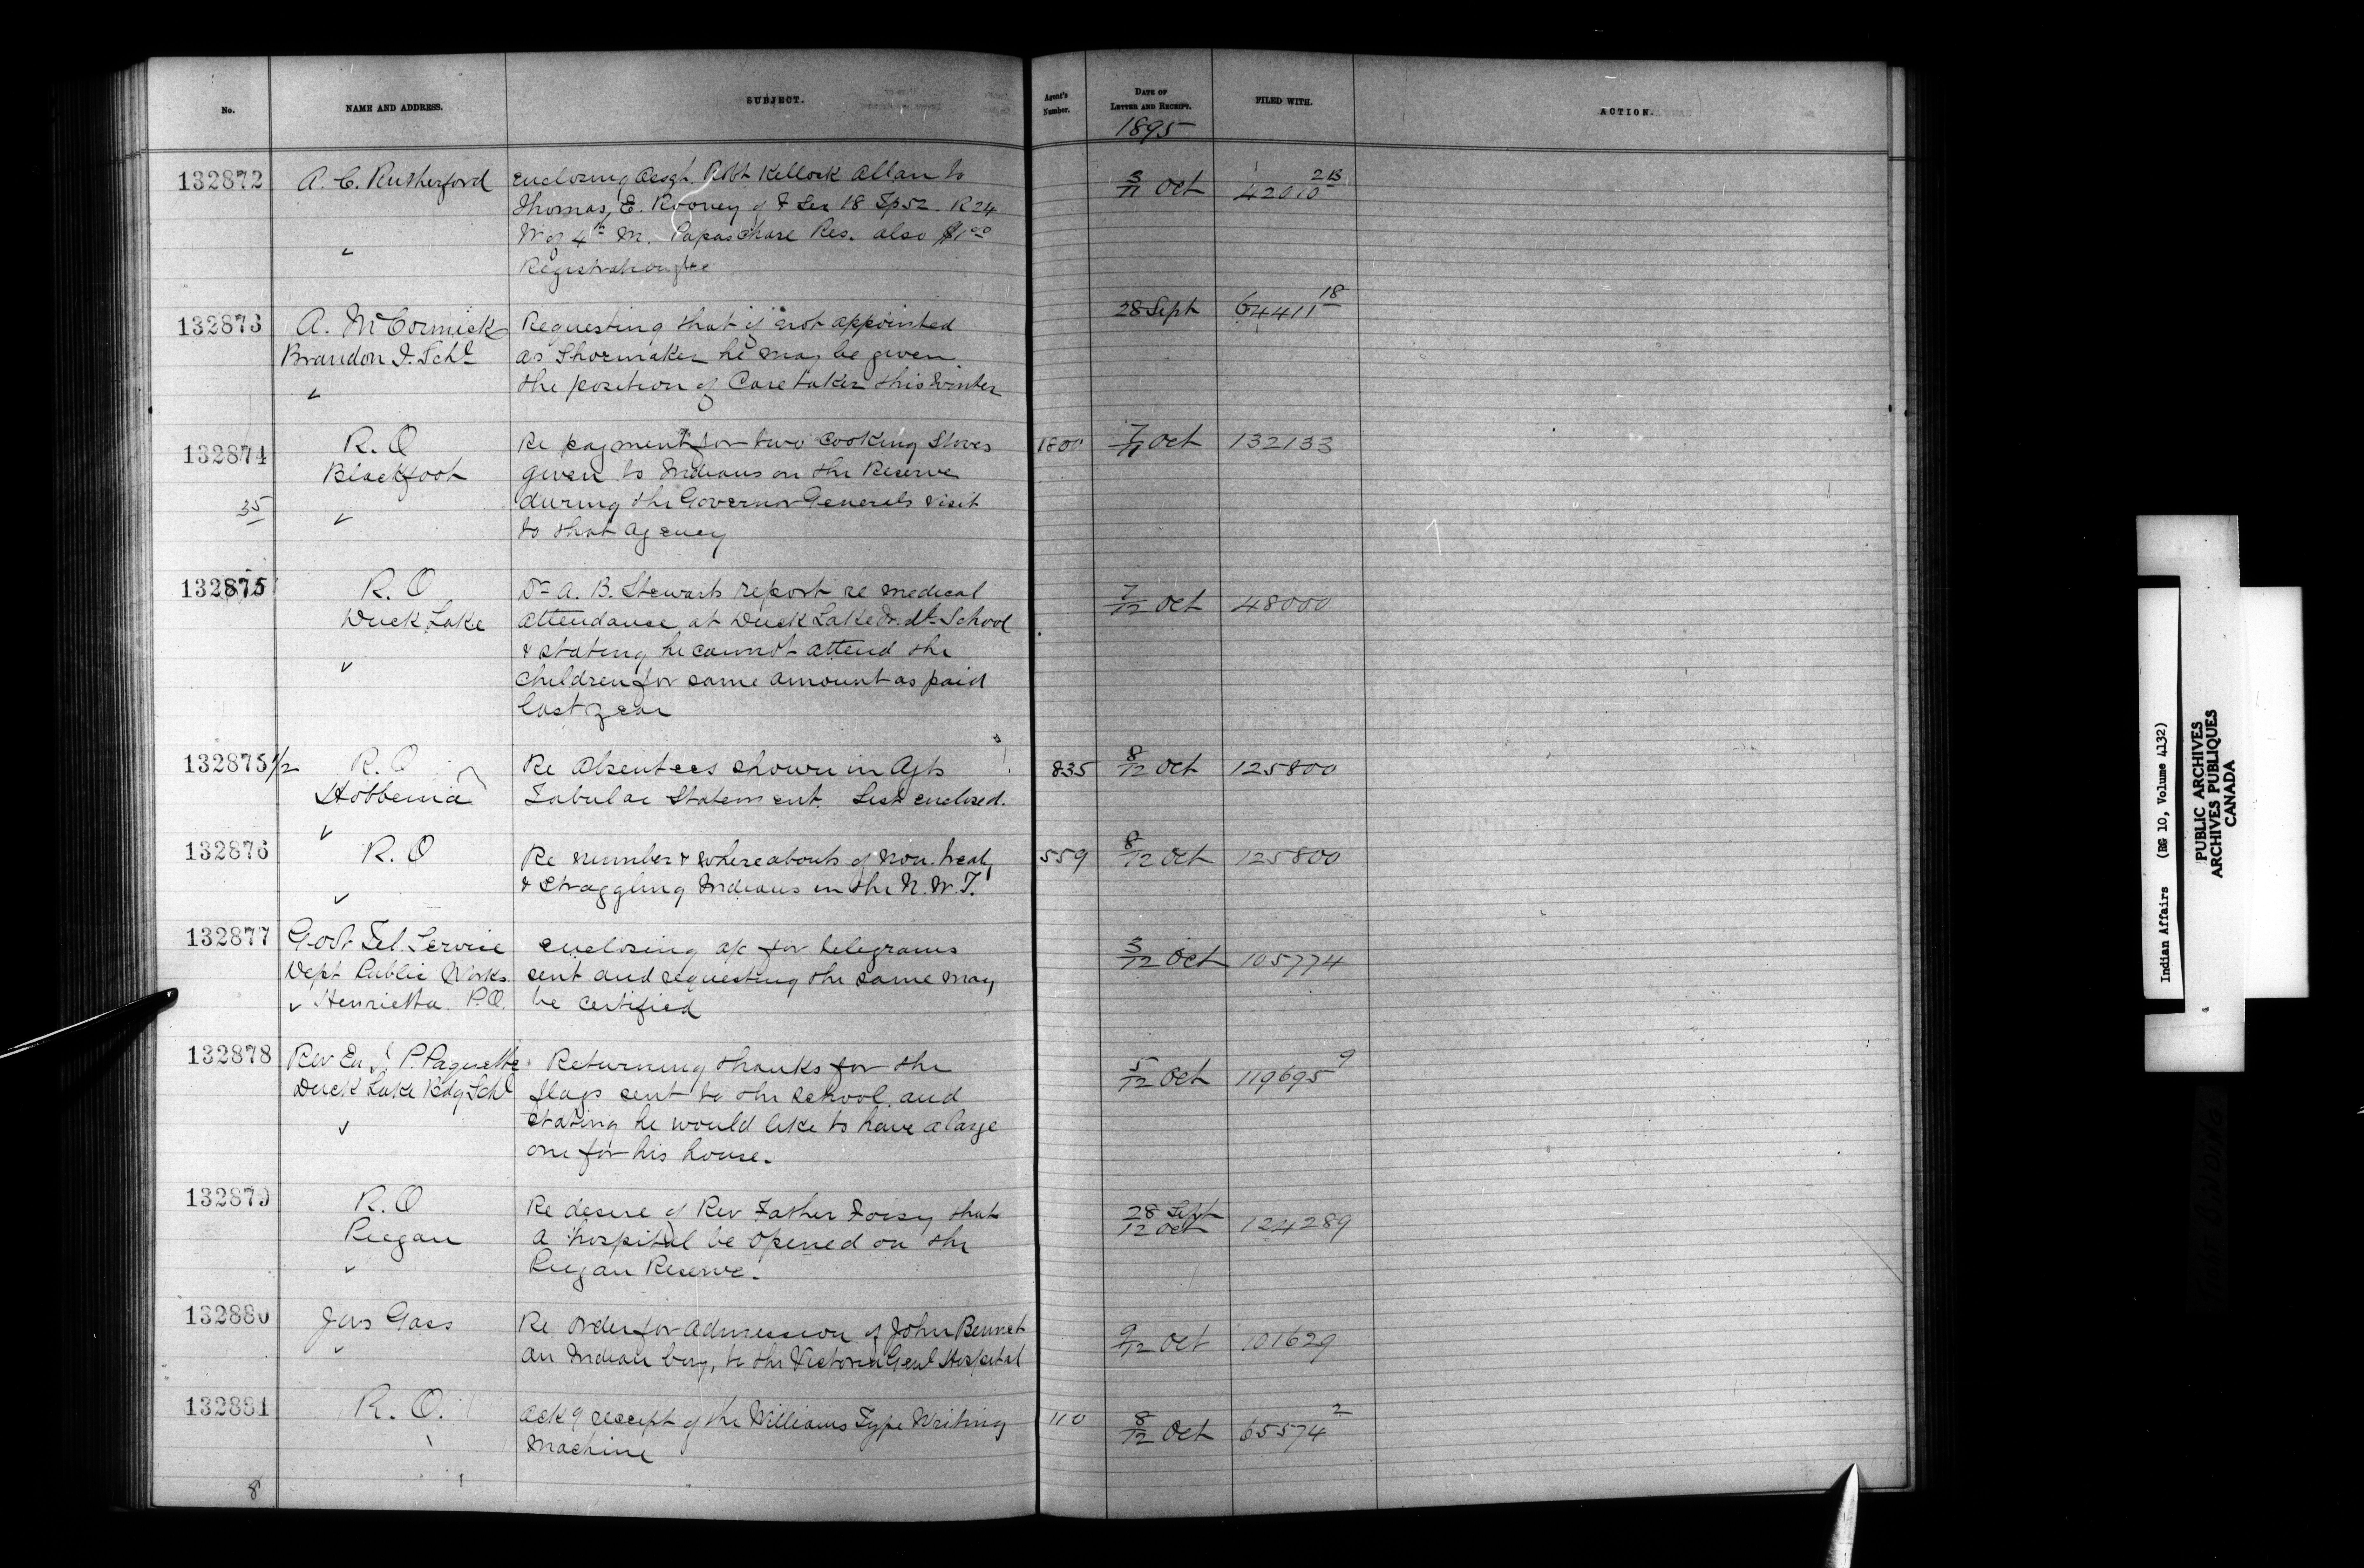 No.
NAME AND ADDRESS.
SUBJECT.
Agent's Number.
DATE OF LETTER AND RECEIPT.
FILED WITH.
ACTION.
1895
132872
A. C. Rutherford
Enclosing Assgt. Robt Kellock Allan to
Thomas, E. Rooney of & Sec 18 Tp 52. R 24
W of 4th M. Papaschase Res. also $1.00
Registration fee
3/11 Oct
42010 213
132873
A. McCormick
Brandon I. Schl
Requesting that if not appointed
as Shoemaker he may be given
the position of Care taker this winter
28 Sept
64411 18
132874
35
R. O
Blackfoot
Re payment for two cooking Stoves
given to Indians on the Reserve
during the Governor Generals visit
to that agency
1800
7/11 Oct
132133
132875
R. O
Duck Lake
Dr A. B. Stewarts report re medical
attendance at Duck Lake School
& stating he cannot attend the
children for same amount as paid
last year
7/12 Oct
48000
132875 1/2
R. O
Hobbema
Re Absentees shown in Agts
Tabular Statement. List enclosed.
835
8/12 Oct
125800
132876
R. O
Re number & whereabouts of non. treaty
& straggling Indians in the N. W. T.
559
8/12 Oct
125800
132877
Govt Tel. Service
Dept Public Works
Henrietta P.O.
Enclosing a/c for telegrams
sent and requesting the same may
be certified
3/12 Oct
105774
132878
Rev P. Paquette
Duck Lake Bdg Schl
Returning thanks for the
flags sent to the school and
stating he would like to have a large
one for his house.
5/12 Oct
119695 9
132879
R. O
Piegan
Re desire of Rev Father Foisy that
a hospital be opened on the
Piegan Reserve.
28 Sept
12 Oct
124289
132880
Jas Gass
Re order for admission of John Bennet
an Indian boy, to the Victoria Genl Hospital
9/12 Oct
101629
132881
R. O.
Ackg receipt of the Williams Type Writing
Machine
110
8/12 Oct
65574 2
8
Indian Affairs (RG 10, Volume 4132)
PUBLIC ARCHIVES
ARCHIVES PUBLIQUES
CANADA